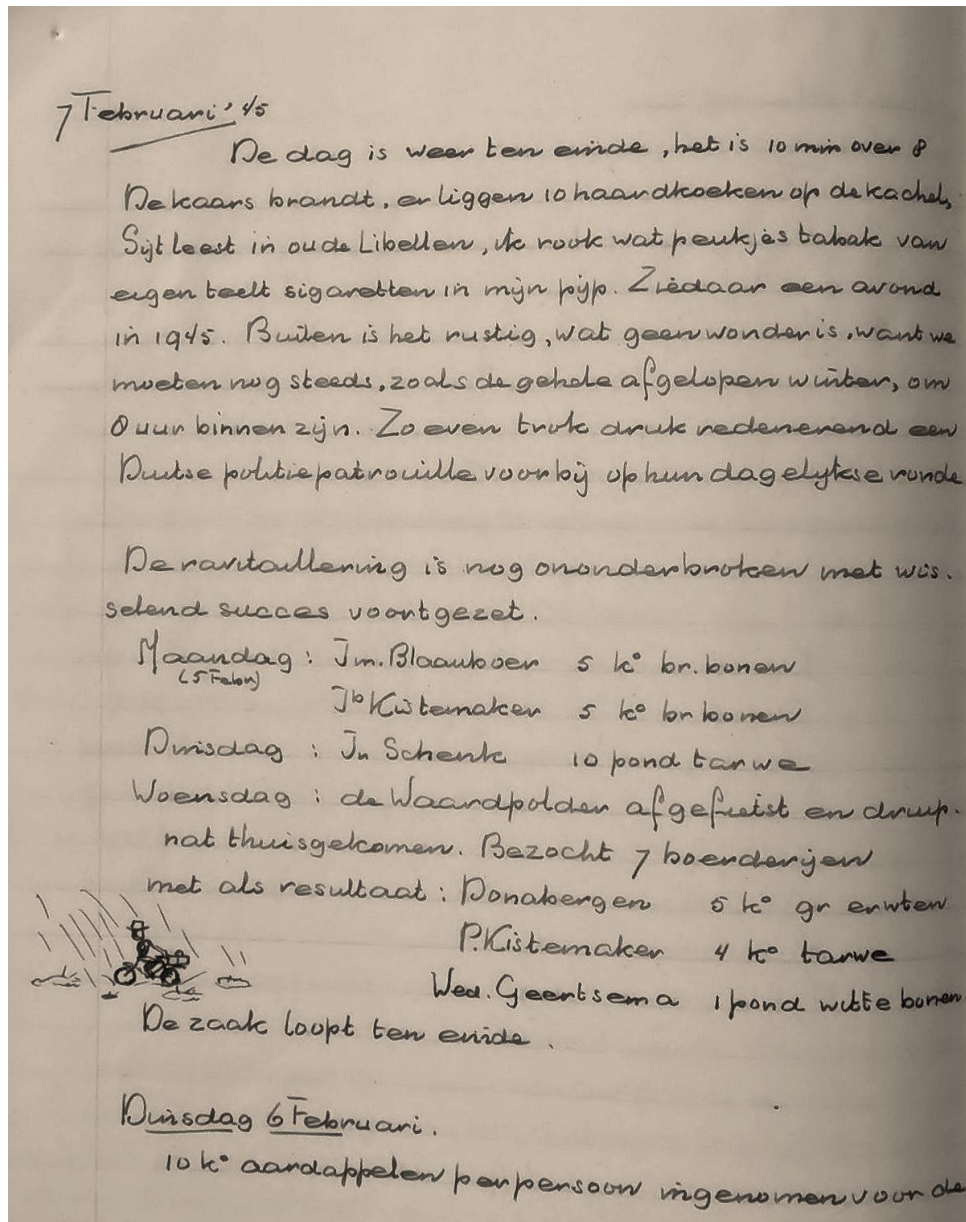 7 Februari '45
De dag is weer ten einde, het is 10 min over 8
De kaars brandt, er liggen 10 haardkoeken op de kachel,
Sijt leest in oude Libellen, ik rook wat peukjes tabak van
eigen teelt sigaretten in mijn pijp. Ziedaar een avond
in 1945. Buiten is het rustig, wat geen wonder is, want we
moeten nog steeds, zoals de gehele afgelopen winter, om
8 uur binnen zijn. Zo even trok druk redenerend een
Duitse politiepatrouille voorbij op hun dagelijkse ronde
De ravitaillering is nog ononderbroken met wis-
selend succes voortgezet.
Maandag : Jm. Blaauboer 5 ko br. bonen
(5 Febr)
Jb Kistemaker 5 ko br bonen
Dinsdag : Jn Schenk 10 pond tarwe
Woensdag : de Waardpolder afgefietst en druip-
nat thuisgekomen. Bezocht 7 boerderijen
met als resultaat : Donabergen 5 ko gr erwten
P. Kistemaker 4 ko tarwe
Wed. Geertsema 1 pond witte bonen
De zaak loopt ten einde.
Dinsdag 6 Februari.
10 ko aardappelen per persoon ingenomen voor de